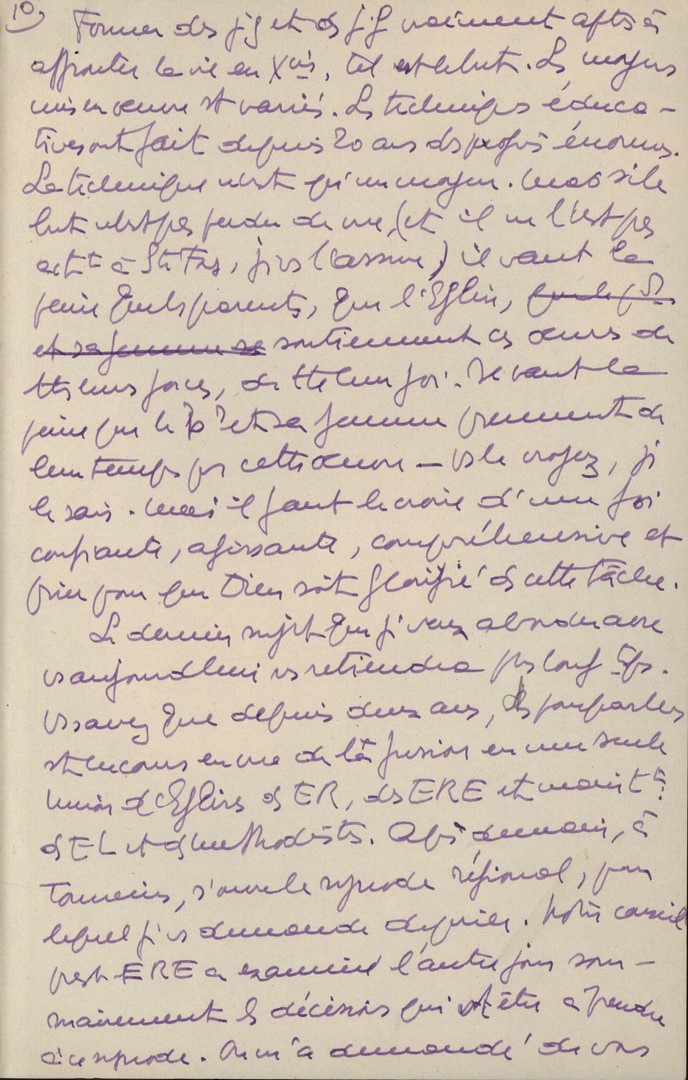 10)
Former des j.g et des j.f vraiment aptes à
affronter la vie en Xens, tel est le but. Les moyens
mis en œuvre st variés. Les techniques éduca-
tives ont fait depuis 20 ans des progrès énormes.
La technique n'est qu'un moyen. Mais si le
but n'est pas perdu de vue, (et il ne l'est pas
à St , je vs l'assure,) il vaut la
peine que les parents, que l'Eglise,
et sa femme se soutiennent ces œuvres de
ttes leurs forces, de tte leur foi. Il vaut la
peine que le et sa femme prennent de
leur temps pr cette œuvre – vs le croyez, je
le sais. Mais il faut le croire d'une foi
confiante, agissante, compréhensive et
prier pour que Dieu soit glorifié ds cette tâche.
Le dernier sujet que je veux aborder avec
vs aujourd'hui vs retiendra pas longtps.
Vs savez que depuis deux ans, des pourparlers
st en cours en vue de la fusion en une seule
Union d'Eglises des ER, des ERE et maintt
des EL et des Méthodistes. Après demain, à
Tonneins, s'ouvre le synode régional, pour
lequel je vs demande de prier. Notre conseil
presb ERE a examiné l'autre jour som-
mairement les décisions qui vt être à prendre
à ce synode. On m'a demandé de vous